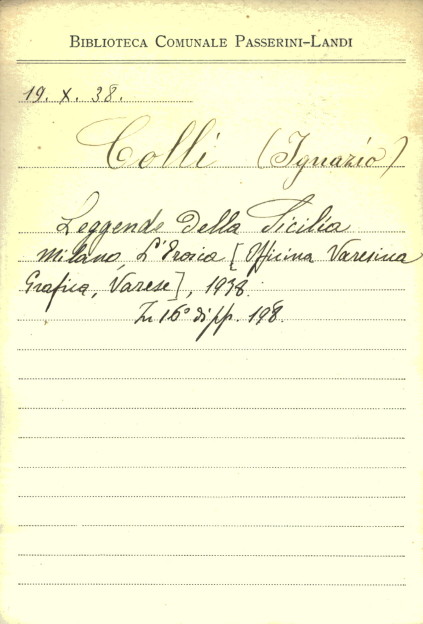 BIBLIOTECA COMUNALE PASSERINI-LANDI
19. X. 38.
Colli (Ignazio)
Leggende della Sicilia
Milano, L'Eroica [Officina Varesina
Grafica, Varese], 1938.
In 16° di pp. 198.